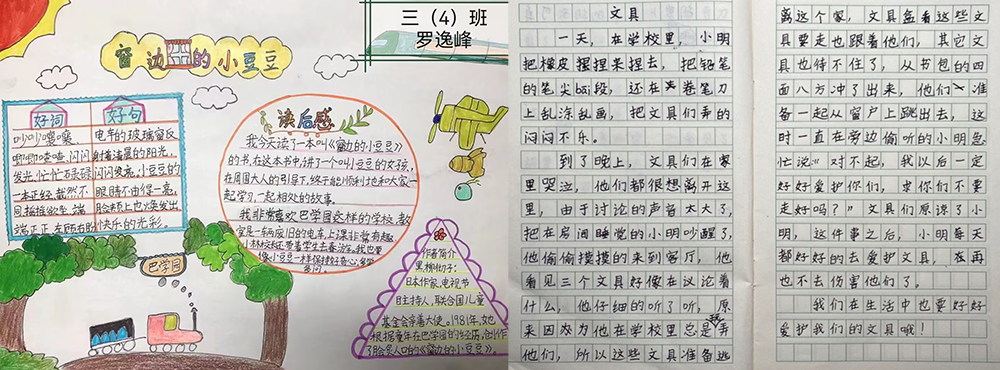 三（4）班
罗逸峰
窗边的小豆豆
好词
吵吵嚷嚷、
唧唧喳喳、闪闪
发光、忙忙碌碌
一本正经、截然不
同、摇摇欲坠、端
端正正、左顾右盼
好句
电车的玻璃窗反
射着清晨的阳光，
闪闪发亮，小豆豆的
眼睛不由得一亮，
脸颊上也焕发出
快乐的光彩。
读后感
我今天读了一本叫《窗边的小豆豆》
的书，在这本书中，讲了一个叫小豆豆的女孩，
在周围大人的引导下，终于能顺利地和大家一
起学习，一起相处的故事。
我非常喜欢巴学园这样的学校，教
室是一车两废旧的电车，上课非常有趣
小林校长还带着学生去春游。我也要
像小豆豆一样保持好奇心，多留
巴学园
作者简介
黑柳彻子：
日本作家、电视节
目主持人，联合国儿童
基金会亲善大使。1981年，她
根据童年在巴学园的经历，创作
了脍炙人口的《窗边的小豆豆》。
文具
一天，在学校里，小明
把橡皮捏捏来捏去，把铅笔
的笔尖bāi段，还在卷笔刀
上乱涂乱画，把文具们弄的
闷闷不乐。
到了晚上，文具们在家
里哭泣，他们都很想离开这
里，由于讨论的声音太大了，
把在房间睡觉的小明吵醒了，
他偷偷摸摸的来到客厅，他
看见三个文具好像在议论着
什么，他仔细的听了听，原
来因为他在学校里总是弄
他们，所以这些文具准备逃
离这个家，文具盒看这些文
具要走也跟着他们，其它文
具也待不住了，从书包的四
面八方冲了出来，他们准
备一起从窗户上跳出去，这
时一直在旁边偷听的小明急
忙说：“对不起，我以后一定
好好爱护你们，求你们不要
走好吗？”文具们原谅了小
明，这件事之后，小明每天
都好好的去爱护文具，在再
也不去伤害他们了。
我们在生活中也要好好
爱护我们的文具哦！